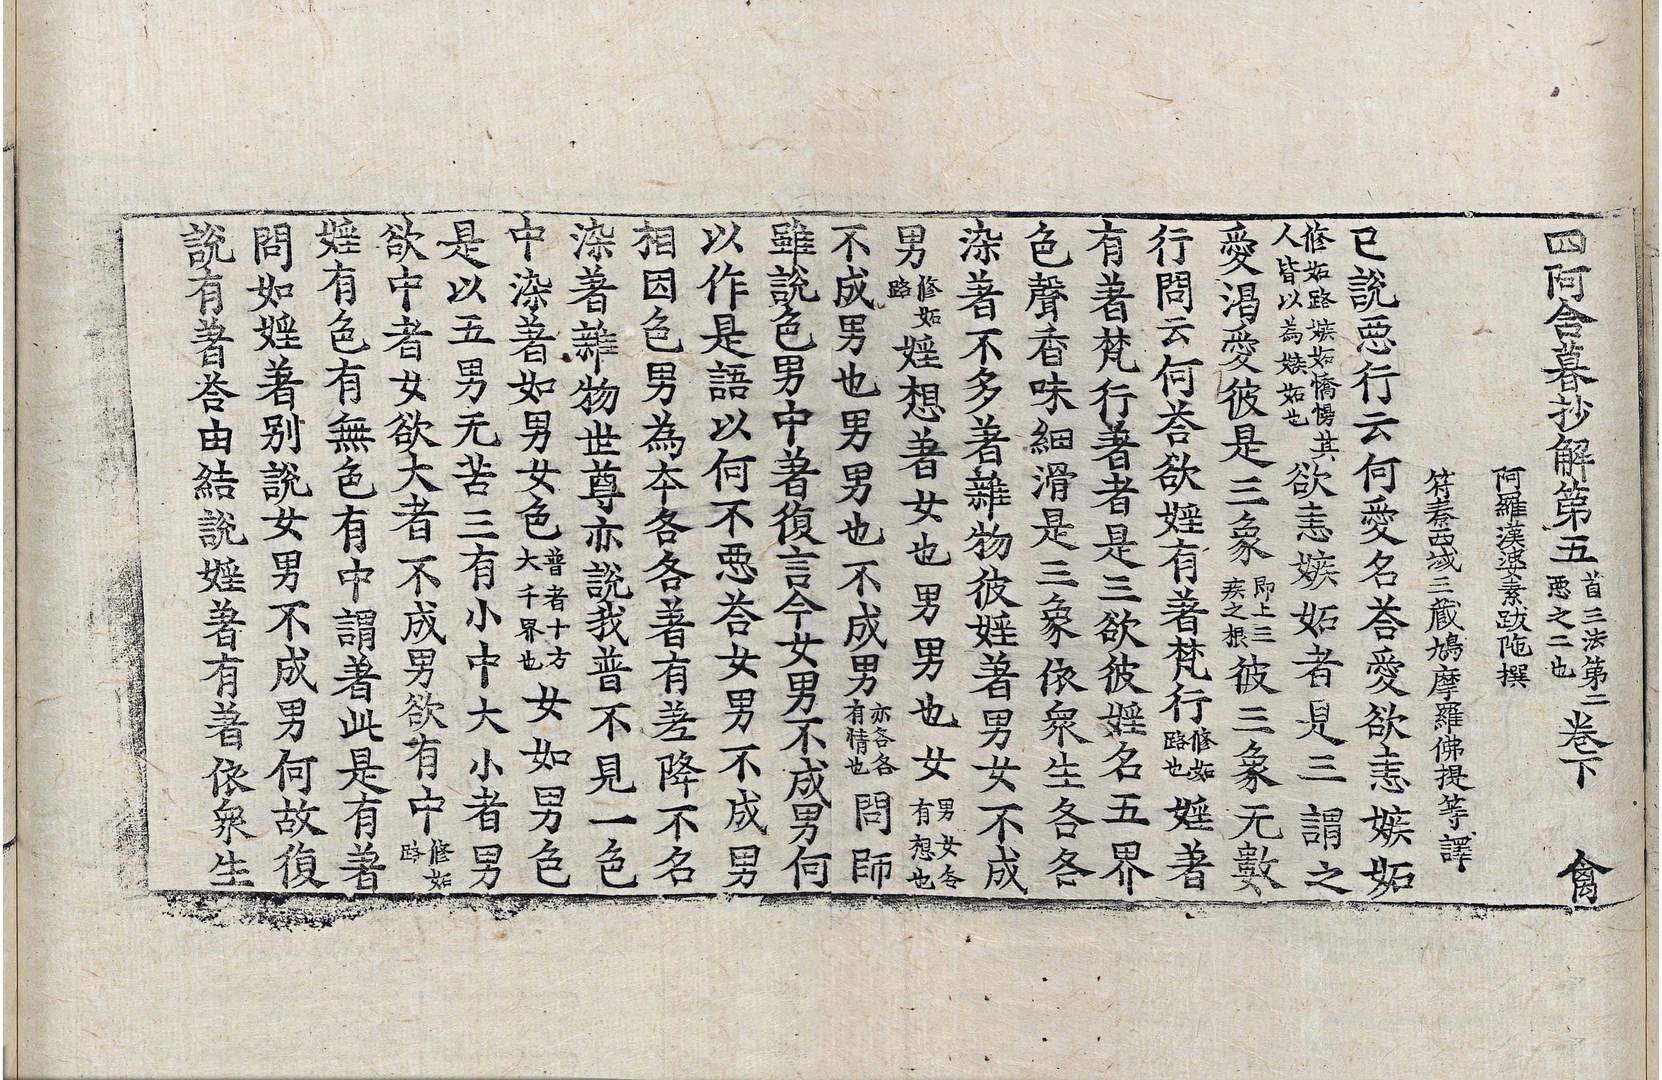 四阿含暮抄解第五 首三法第二惡之二也 卷下 禽
阿羅漢婆素跋陁撰
符秦西域三藏鳩摩羅佛提等譯
已說惡行云何愛名荅愛欲恚嫉妬
修妬路嫉妬憍慢其人皆以為嫉妬也 欲恚嫉妬者是三謂之
愛渴愛彼是三象 即上三疾之根 彼三象无數
行問云何荅欲婬有著梵行 修妬路也 婬著
有著梵行著者是三欲彼婬名五界
色聲香味細滑是三象依衆生各各
染著不多著雜物彼婬著男女不成
男 修妬路 婬想著女也男男也女 男女各有想也
不成男也男男也不成男 亦各各有猜也 問師
雖說色男中著復言今女男不成男何
以作是語以何不惡荅女男不成男
相因色男為本各各著有差降不名
染著雜物世尊亦說我普不見一色
中染著如男女色 普者十方大千界也 女如男色
是以五男无苦三有小中大小者男
欲中者女欲大者不成男欲有中 修妬路
婬有色有無色有中謂著此是有著
問如婬著別說女男不成男何故復
說有著荅由結說婬著有著依衆生